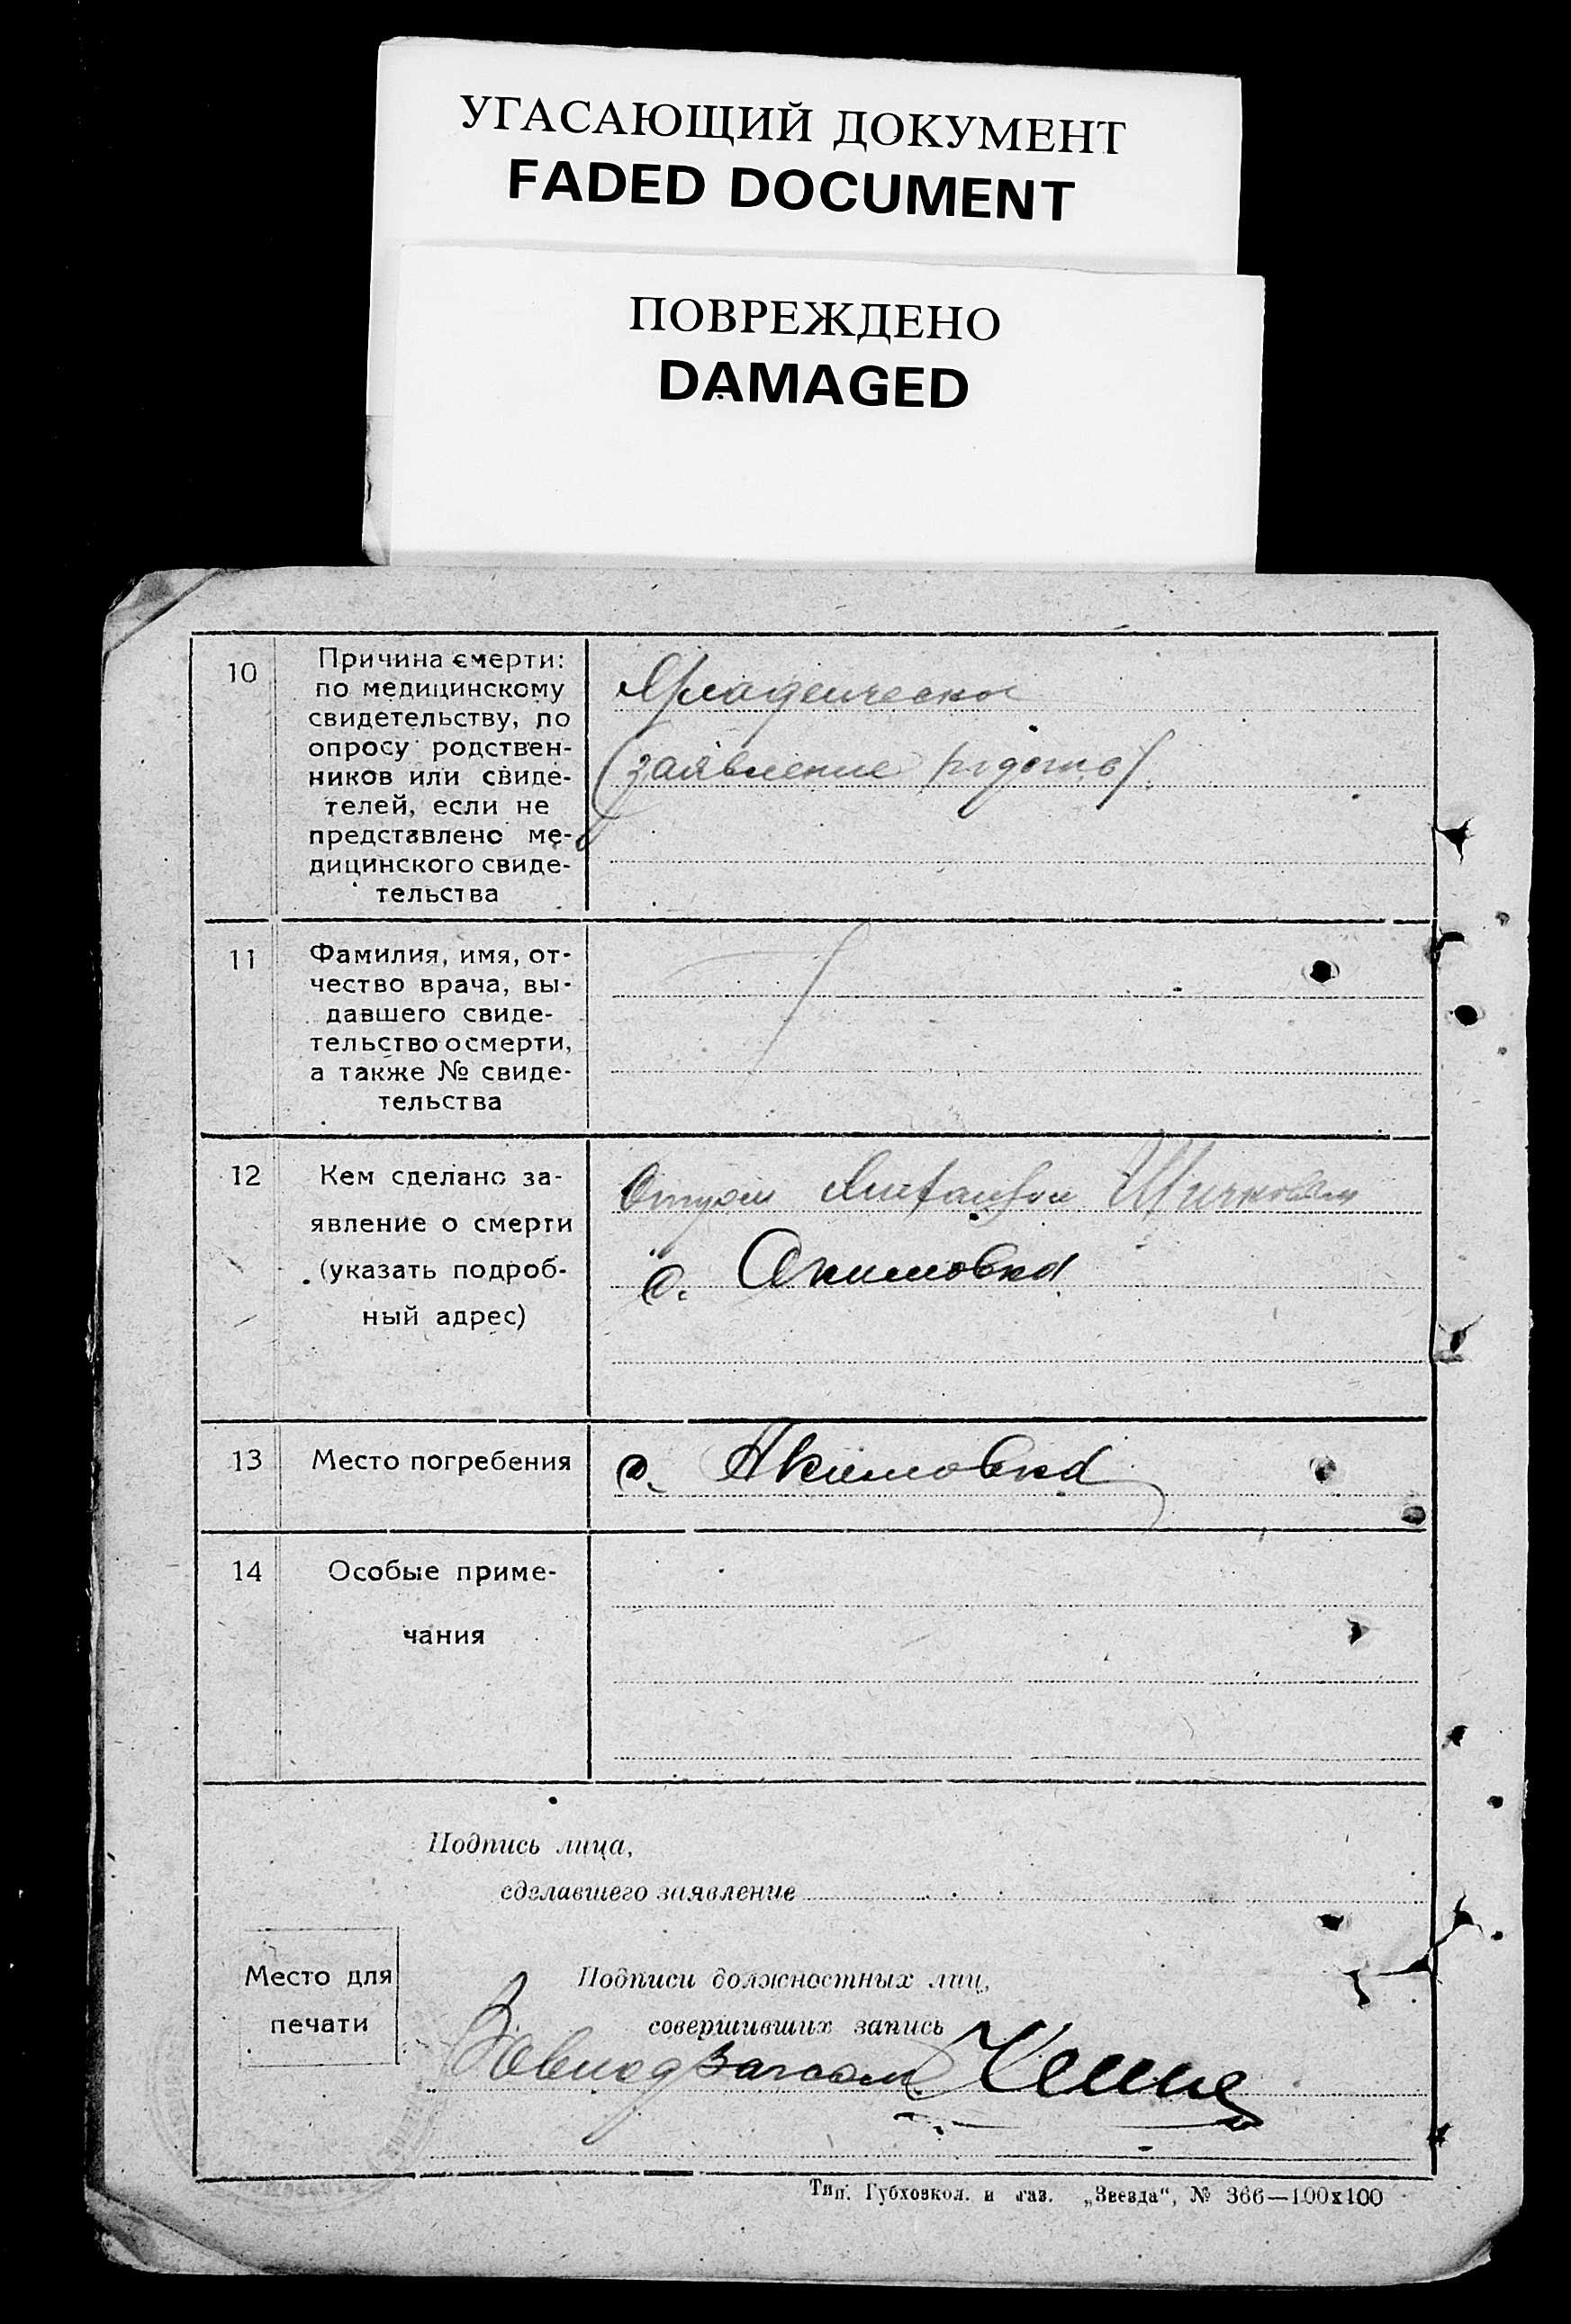 УГАСАЮЩИЙ ДОКУМЕНТ
FADED DOCUMENT
ПОВРЕЖДЕНО
DAMAGED
10
Причина смерти:
по медицинскому
свидетельству, по
опросу родствен-
ников или свиде-
телей, если не
представлено ме-
дицинского свиде-
тельства
Младенческая
(заявление родств)
11
Фамилия, имя, от-
чество врача, вы-
давшего свиде-
тельство о смерти,
а также № свиде-
тельства
12
Кем сделано за-
явление о смерти
(указать подроб-
ный адрес)
Отцом
с. Акимовка
13
Место погребения
с. Акимовка
14
Особые приме-
чания
Подпись лица,
сделавшего заявление
Место для
печати
Подписи должностных лиц,
совершивших запись
Завподзагсом
Тип. Губхозкол. и газ. „Звезда“, № 366—100х100